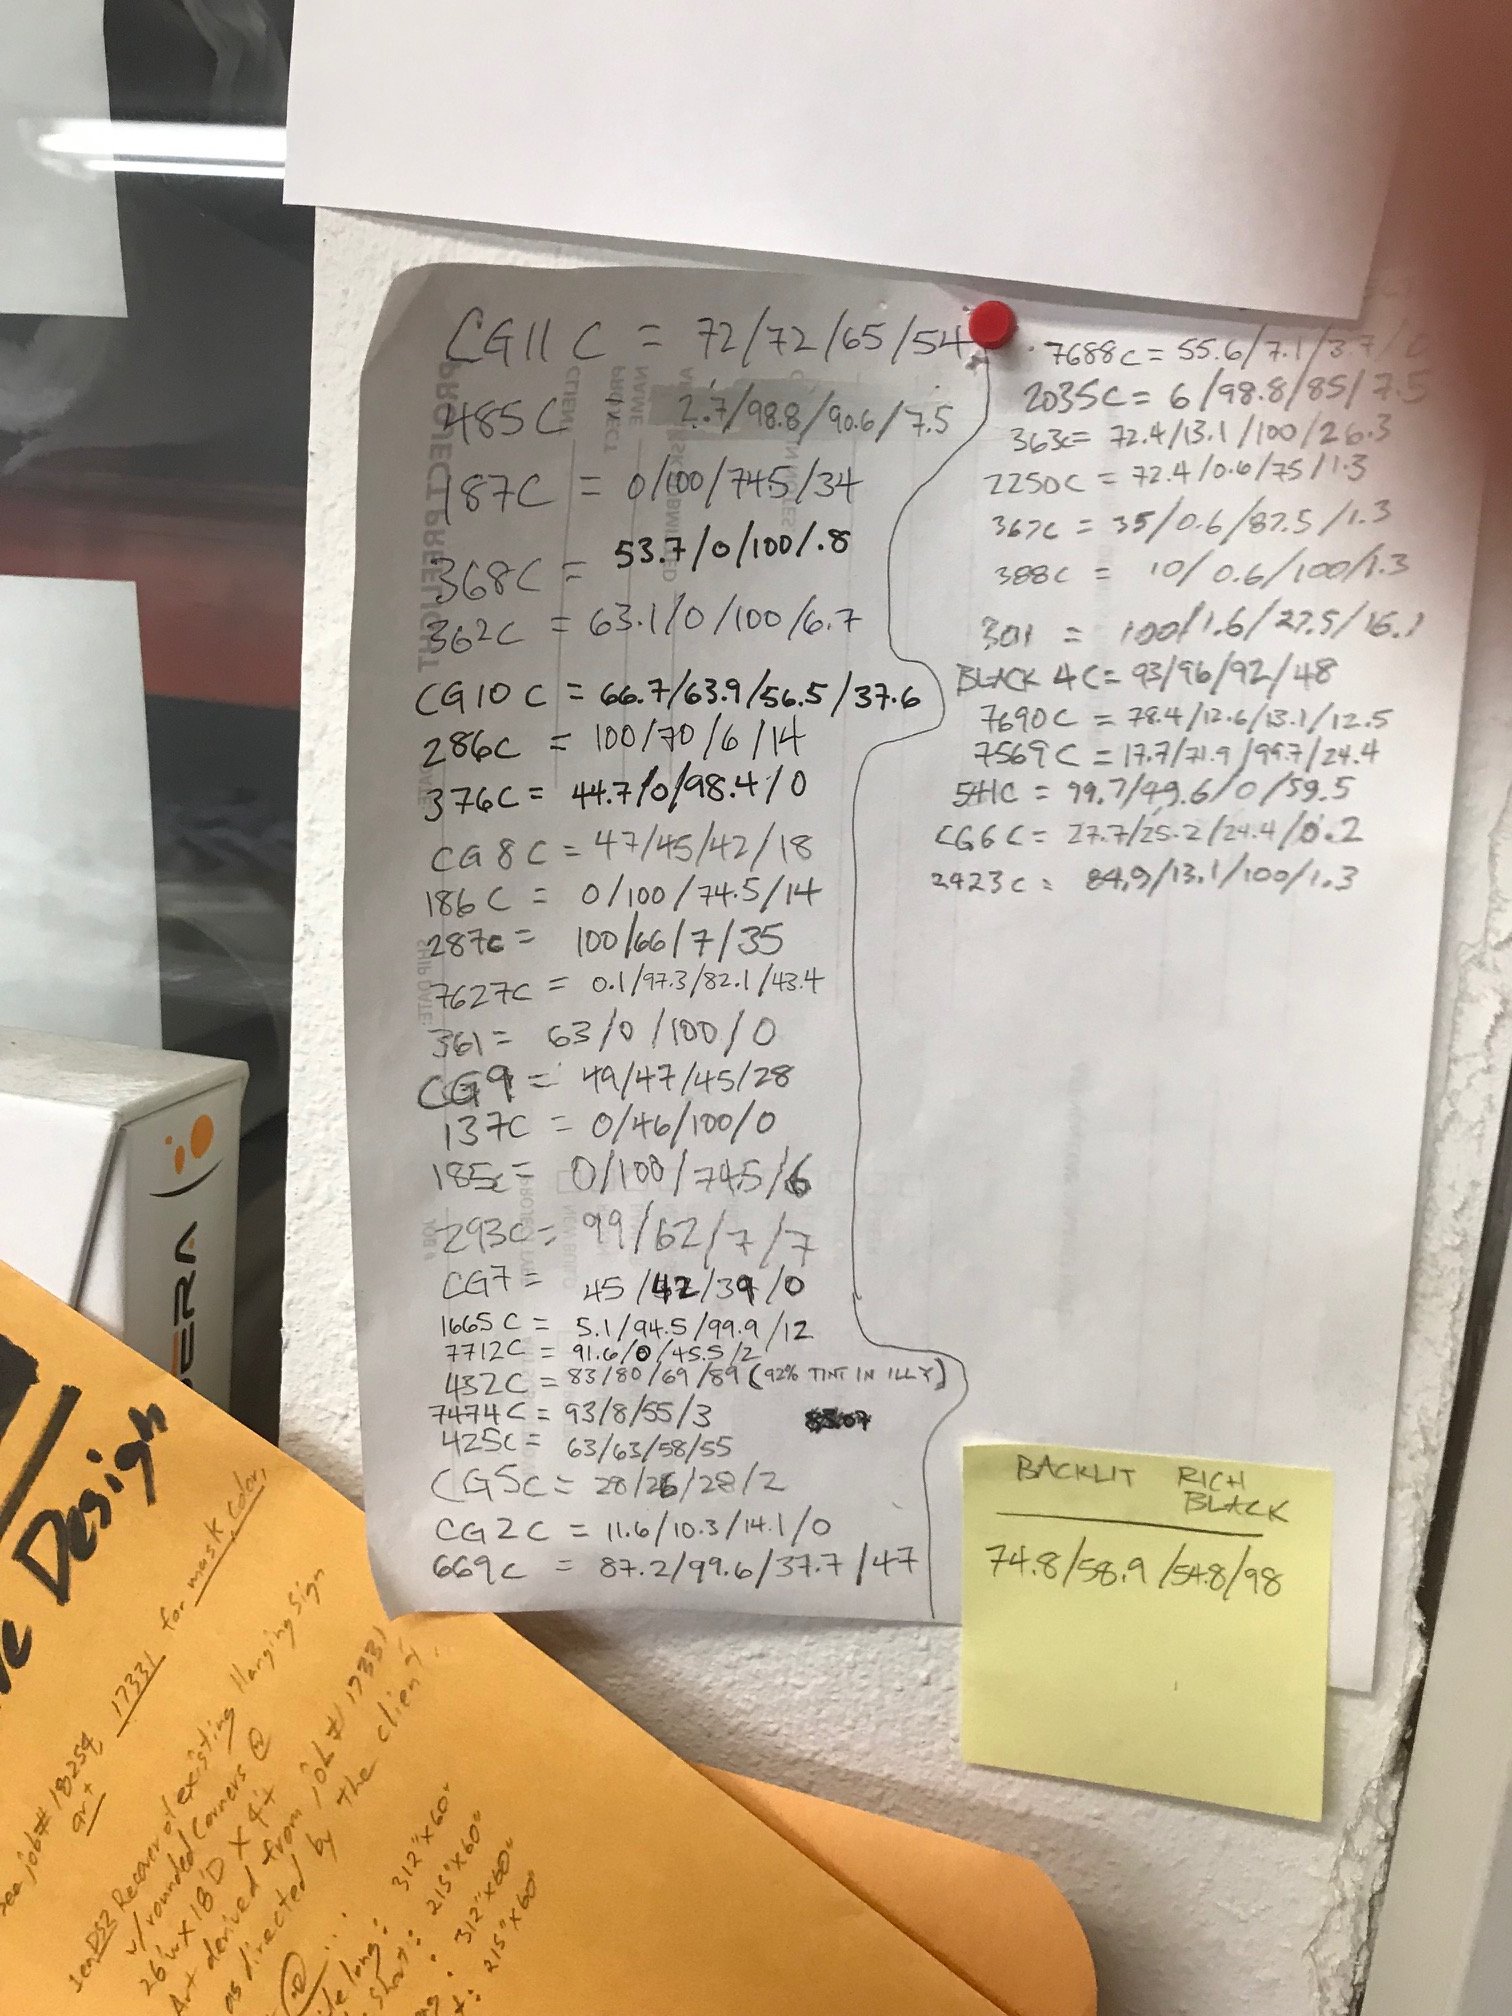 CG11 C = 72/72/65/54
485C = 2.7/98.8/90.6/7.5
187C = 0/100/74.5/34
368C = 53.7/0/100/.8
362C = 63.1/0/100/6.7
CG10 C = 66.7/63.9/56.5/37.6
286C = 100/70/6/14
376C = 44.7/0/98.4/0
CG8C = 47/45/42/18
186C = 0/100/74.5/14
287C = 100/66/7/35
7627C = 0.1/97.3/82.1/43.4
361 = 63/0/100/0
CG9 = 49/47/45/28
137C = 0/46/100/0
185c = 0/100/74.5/6
293C = 99/62/7/7
CG7 = 45/42/39/0
1665C = 5.1/94.5/99.9/12
7712C = 91.6/0/45.5/2
432C = 83/80/69/89 (92% TINT IN ILLY)
7474C = 93/8/55/3
425C = 63/63/58/55
CG5C = 28/26/28/2
CG2C = 11.6/10.3/14.1/0
669C = 87.2/99.6/37.7/47
7688C = 55.6/7.1/3.7/
2035C = 6/98.8/85/7.5
363C = 72.4/13.1/100/26.3
2250C = 72.4/0.6/75/1.3
367C = 35/0.6/87.5/1.3
388C = 10/0.6/100/1.3
3011 = 100/1.6/27.5/16.1
BLACK 4C = 93/96/92/48
7690C = 78.4/12.6/13.1/12.5
7569C = 17.7/71.9/99.7/24.4
541C = 99.7/49.6/0/59.5
CG6C = 27.7/25.2/24.4/0.2
2423C = 84.9/13.1/100/1.3
BACKLIT RICH
BLACK
74.8/58.9/54.8/98
PROJECT PREFLIGHT
CLIENT
PROJECT
NAME
SHIP DATE:
Design
see job# 18259 17331 for mask, color,
art
Recover of existing Hanging Sign
w/rounded Corners @
26'W X 18'D X 4't
Art derived from job# 17331
as directed by the client.
long: 312"x60"
short: 215"x60"
312"x60"
215"x60"